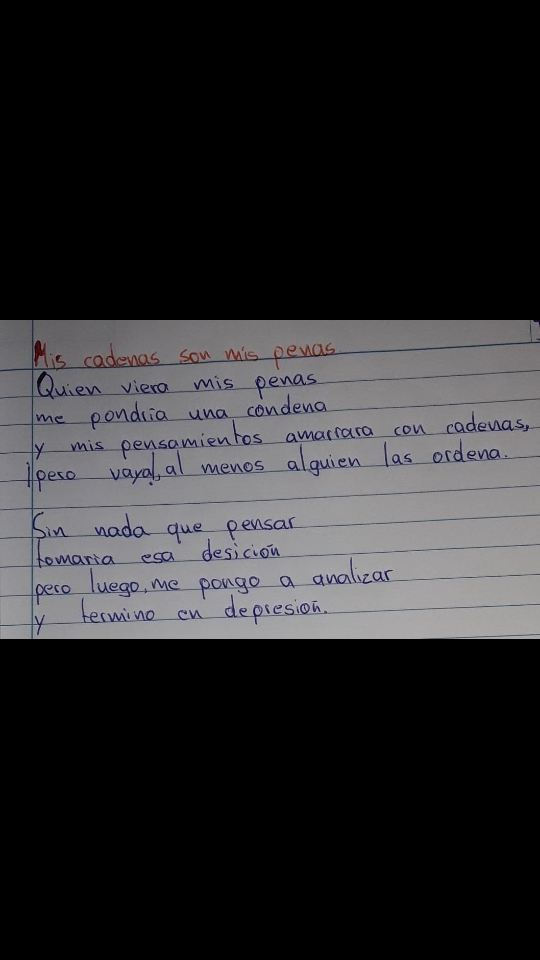 Mis cadenas son mis penas
Quien viera mis penas
me pondria una condena
y mis pensamientos amarrara con cadenas,
¡pero vaya!, al menos alguien las ordena.
Sin nada que pensar
tomaria esa desición
pero luego, me pongo a analizar
y termino en depresión.